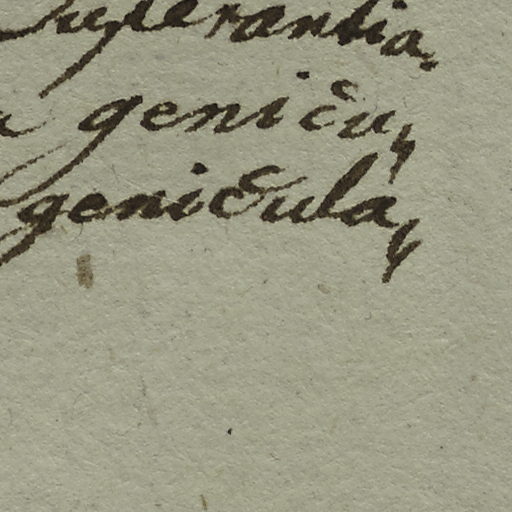 Superantia.
genicu,
genicula,